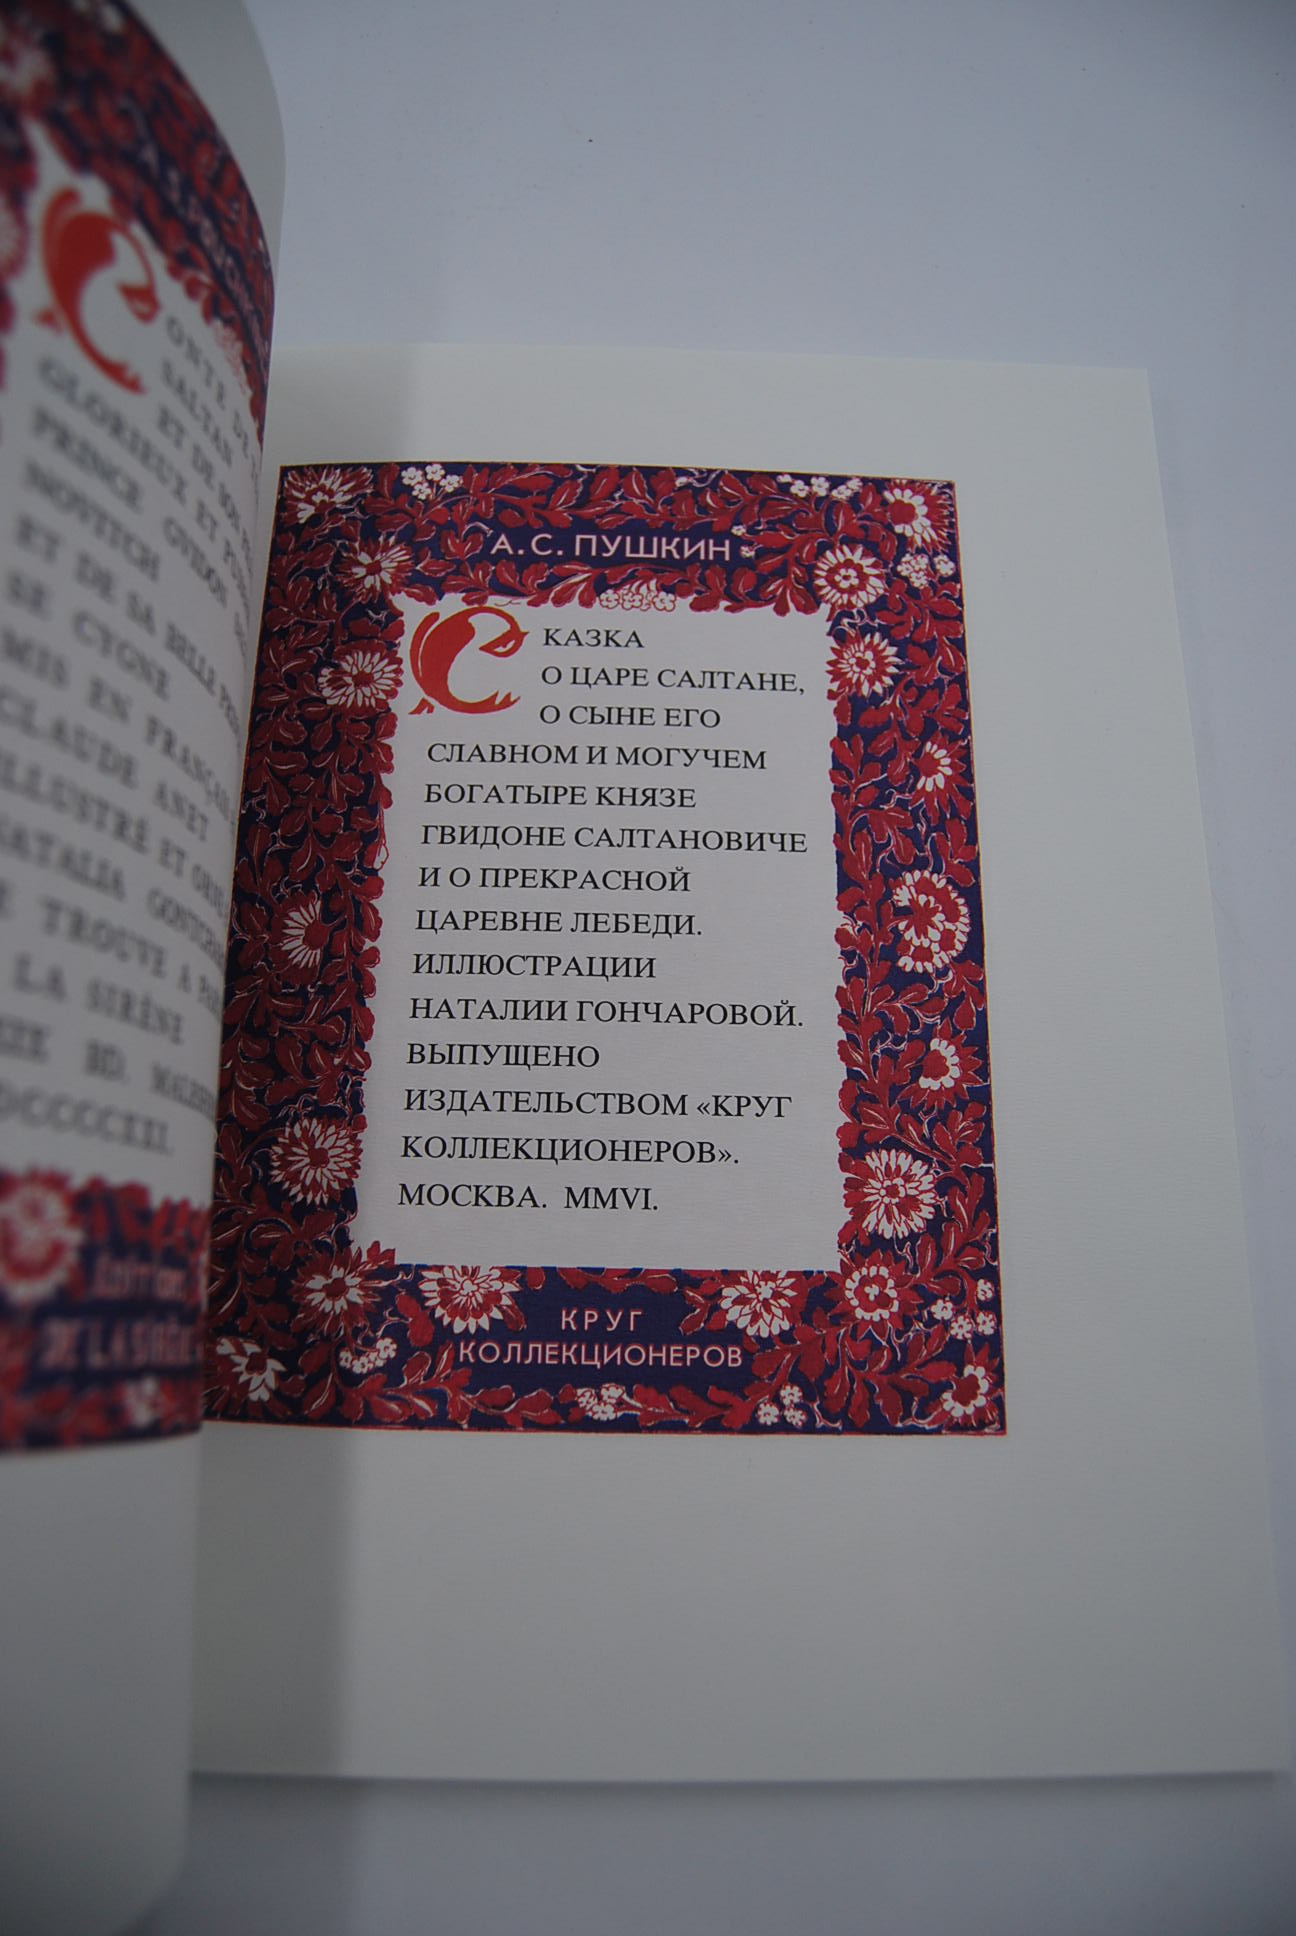 ONTE DE
SALTAN
ET DE SON
GLORIEUX ET
PRINCE GVIDON
NOVITCH
ET DE SA BELLE
SE CYGNE
MIS EN FRANÇAIS
CLAUDE ANET
ILLUSTRÉ ET
NATALIA
TROUVE A
LA SIRÈNE
BD.
А. С. ПУШКИН
СКАЗКА
О ЦАРЕ САЛТАНЕ,
О СЫНЕ ЕГО
СЛАВНОМ И МОГУЧЕМ
БОГАТЫРЕ КНЯЗЕ
ГВИДОНЕ САЛТАНОВИЧЕ
И О ПРЕКРАСНОЙ
ЦАРЕВНЕ ЛЕБЕДИ.
ИЛЛЮСТРАЦИИ
НАТАЛИИ ГОНЧАРОВОЙ.
ВЫПУЩЕНО
ИЗДАТЕЛЬСТВОМ «КРУГ
КОЛЛЕКЦИОНЕРОВ».
МОСКВА. MMVI.
КРУГ
КОЛЛЕКЦИОНЕРОВ